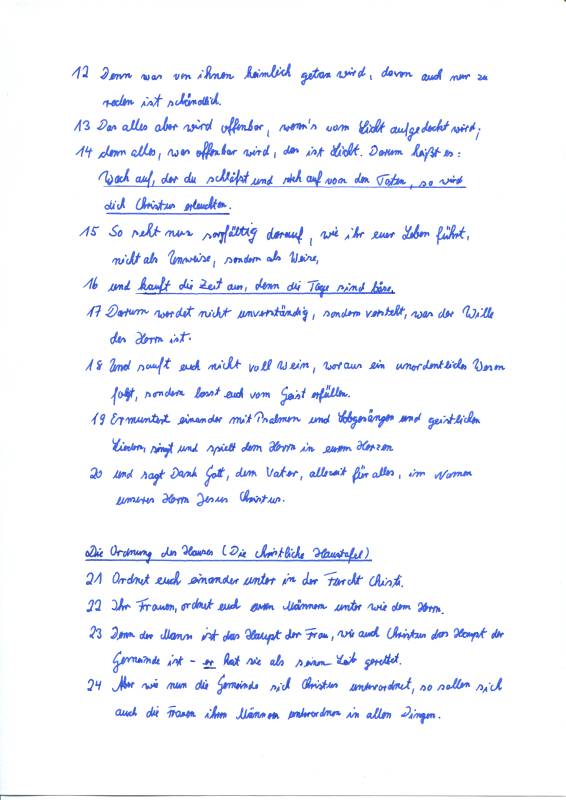 12 Denn was von ihnen heimlich getan wird, davon auch nur zu
reden ist schändlich.
13 Das alles aber wird offenbar, wenn's vom Licht aufgedeckt wird;
14 denn alles, was offenbar wird, das ist Licht. Darum heißt es:
Wach auf, der du schläfst und steh auf von den Toten, so wird
dich Christus erleuchten.
15 So seht nun sorgfältig darauf, wie ihr euer Leben führt,
nicht als Unweise, sondern als Weise,
16 und kauft die Zeit aus, denn die Tage sind böse.
17 Darum werdet nicht unverständig, sondern versteht, was der Wille
des Herrn ist.
18 Und sauft euch nicht voll Wein, woraus ein unordentliches Wesen
folgt, sondern lasst euch vom Geist erfüllen.
19 Ermuntert einander mit Psalmen und Lobgesängen und geistlichen
Liedern, singt und spielt dem Herrn in eurem Herzen
20 und sagt Dank Gott, dem Vater, allezeit für alles, im Namen
unseres Herrn Jesus Christus.
Die Ordnung des Hauses (Die christliche Haustafel)
21 Ordnet euch einander unter in der Furcht Christi.
22 Ihr Frauen, ordnet euch euren Männern unter wie dem Herrn.
23 Denn der Mann ist das Haupt der Frau, wie auch Christus das Haupt der
Gemeinde ist - er hat sie als seinen Leib gerettet.
24 Aber wie nun die Gemeinde sich Christus unterordnet, so sollen sich
auch die Frauen ihren Männern unterordnen in allen Dingen.